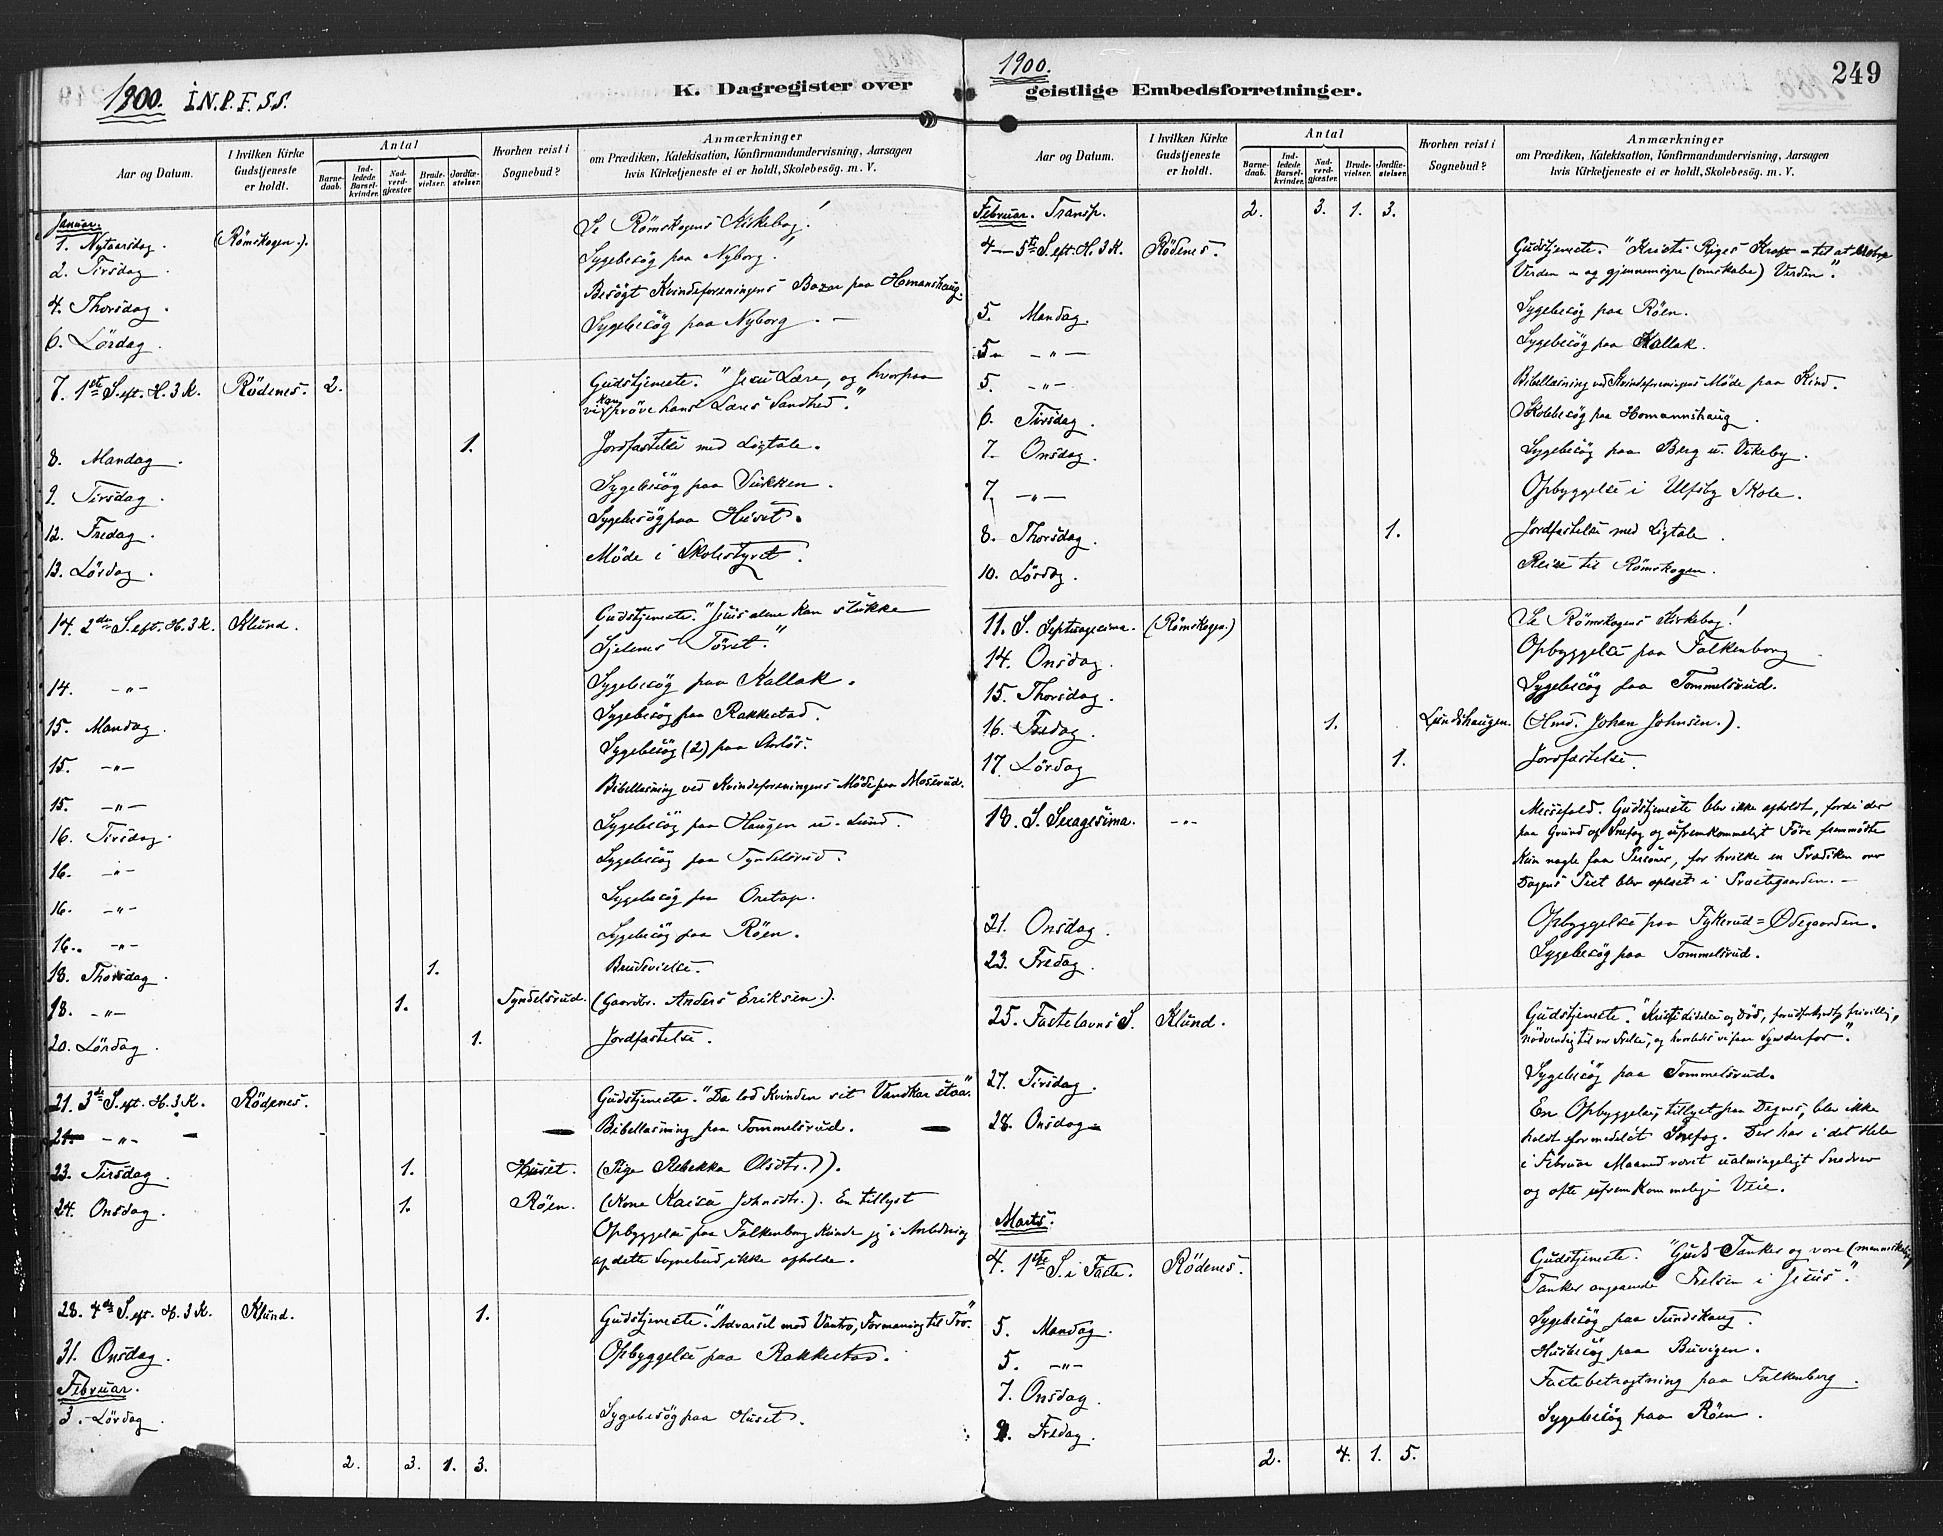 1900. I.N.P.F.S.S.
K. Dagregister over
Aar og Datum.
I hvilken Kirke Gudstjeneste er holdt.
Antal
Barne-daab.
Ind-ledede Barsel-kvinder.
Nad-verd-gjæster.
Brude-vielser.
Jordfæ-stelser.
Hvorhen reist i Sognebud?
Anmærkninger
om Prædiken, Katekisation, Konfirmandundervisning, Aarsagen
hvis Kirketjeneste ei er holdt, Skolebesøg. m. V.
Januar.
1. Nytaarsdag. (Römskogen.). Se Römskogens Kirkebog!
2. Tirsdag. Sygebesög paa Nyborg.
4. Thorsdag. Besögt Kvindeforeningens Bazar paa Homanshaug.
6. Lördag. Sygebesög paa Nyborg. —
7. 1ste S. eft. H. 3 K. Rödenes. 2. Gudstjeneste. "Jesu Lære, og hvorpaa
vi kan pröve hans Læres Sandhed."
8. Mandag. 1. Jordfæstelse med Ligtale.
9. Tirsdag. Sygebesög paa
12. Fredag. Sygebesög paa Huset.
13. Lördag. Möde i Skolestyret.
14. 2den S. eft. H. 3 K. Klund. Gudstjeneste. "Jesus alene kan slukke
Sjelenes Törst."
14. —"— Sygebesög paa Kallak.
15. Mandag. Sygebesög paa Rakkestad.
15. —"— Sygebesög (2) paa
15. —"— Bibellæsning ved Kvindeforeningens Möde paa Moserud.
16. Tirsdag. Sygebesög paa Haugen u. Lund.
16. —"— Sygebesög paa Tyndelsrud.
16. —"— Sygebesög paa
16. —"— Sygebesög paa Röen.
18. Thorsdag. 1. Brudevielse.
18. —"— 1. Tyndelsrud. (Gaardbr. Anders Eriksen.).
20. Lördag. 1. Jordfæstelse.
21. 3die S. eft. H. 3 K. Rödenes. Gudstjeneste. "Da lod Kvinden sit Vandkar staa."
21. —"— Bibellæsning paa Tommelsrud.
23. Tirsdag. 1. Huset. (Pige Rebekka Olsdtr.).
24. Onsdag. 1. Röen. (Kone Kaisa Johnsdtr.). En tillyst
Opbyggelse paa Falkenborg kunde jeg i Anledning
af dette Sognebud ikke afholde.
28. 4de S. eft. H. 3 K. Klund. 1. Gudstjeneste. "Advarsel mod Vantro, Formaning til Tro."
31. Onsdag. Opbyggelse paa Rakkestad.
Februar.
3. Lördag. Sygebesög paa Huset.
2. 3. 1. 3.
1900.
249
geistlige Embedsforretninger.
Aar og Datum.
I hvilken Kirke Gudstjeneste er holdt.
Antal
Barne-daab.
Ind-ledede Barsel-kvinder.
Nad-verd-gjæster.
Brude-vielser.
Jordfæ-stelser.
Hvorhen reist i Sognebud?
Anmærkninger
om Prædiken, Katekisation, Konfirmandundervisning, Aarsagen
hvis Kirketjeneste ei er holdt, Skolebesøg. m. V.
Februar. Transp. 2. 3. 1. 3.
4— 5te S. eft. H. 3 K. Rödenes. Gudstjeneste. "Kristi Riges Kraft – til at
Verden – og gjennemsyre (omskabe) Verden".
5. Mandag. Sygebesög paa Röen.
5. —"— Sygebesög paa Kallak.
5. —"— Bibellæsning ved Kvindeforeningens Möde paa Kind.
6. Tirsdag. Skolebesög paa Homannshaug.
7. Onsdag. Sygebesög paa Berg u. Vikeby.
7. —"— Opbyggelse i Ulfsby Skole.
8. Thorsdag. 1. Jordfæstelse med Ligtale.
10. Lördag. Reise til Römskogen.
11. S. Septuagesima. (Römskogen.) Se Römskogens Kirkebog!
14. Onsdag. Opbyggelse paa Falkenborg
15. Thorsdag. Sygebesög paa Tommelsrud.
16. Fredag. 1. Lundshaugen. (Hmd. Johan Johnsen.).
17. Lördag 1. Jordfæstelse.
18. S. Sexagesima. —"— Messefald. Gudstjeneste blev ikke afholdt, fordi der
paa Grund af Snefog og ufremkommeligt Före fremmödte
kun nogle faa Personer, for hvilke en Prædiken over
Dagens Text blev oplæst i Præstegaarden. —
21. Onsdag. Opbyggelse paa Tykkerud=Ödegaarden.
23. Fredag. Sygebesög paa Tommelsrud.
25. Fastelavns S. Klund. Gudstjeneste. "Kristi Lidelse og Död, forudforkyndt, frivillig,
nödvendig til vor Frelse, og hvorledes vi faar Syn derfor".
27. Tirsdag. Sygebesög paa Tommelsrud.
28. Onsdag En Opbyggelse, tillyst paa Degnes, blev ikke
holdt formedelst Snefog. Der har i det Hele
i Februar Maaned været ualmindeligt Snedrev
og ofte ufremkommelige Veie.
Marts.
4. 1ste S. i Faste. Rödenes. Gudstjeneste. "Guds Tanker og vore (menneskelige)
Tanker angaaende Frelsen i Jesus".
5. Mandag. Sygebesög paa Sundshaug.
5. —"— Husbesög paa Buvigen.
7. Onsdag. Fastebetragtning paa Falkenberg.
9. Fredag. Sygebesög paa Röen.
2. 4. 1. 5.